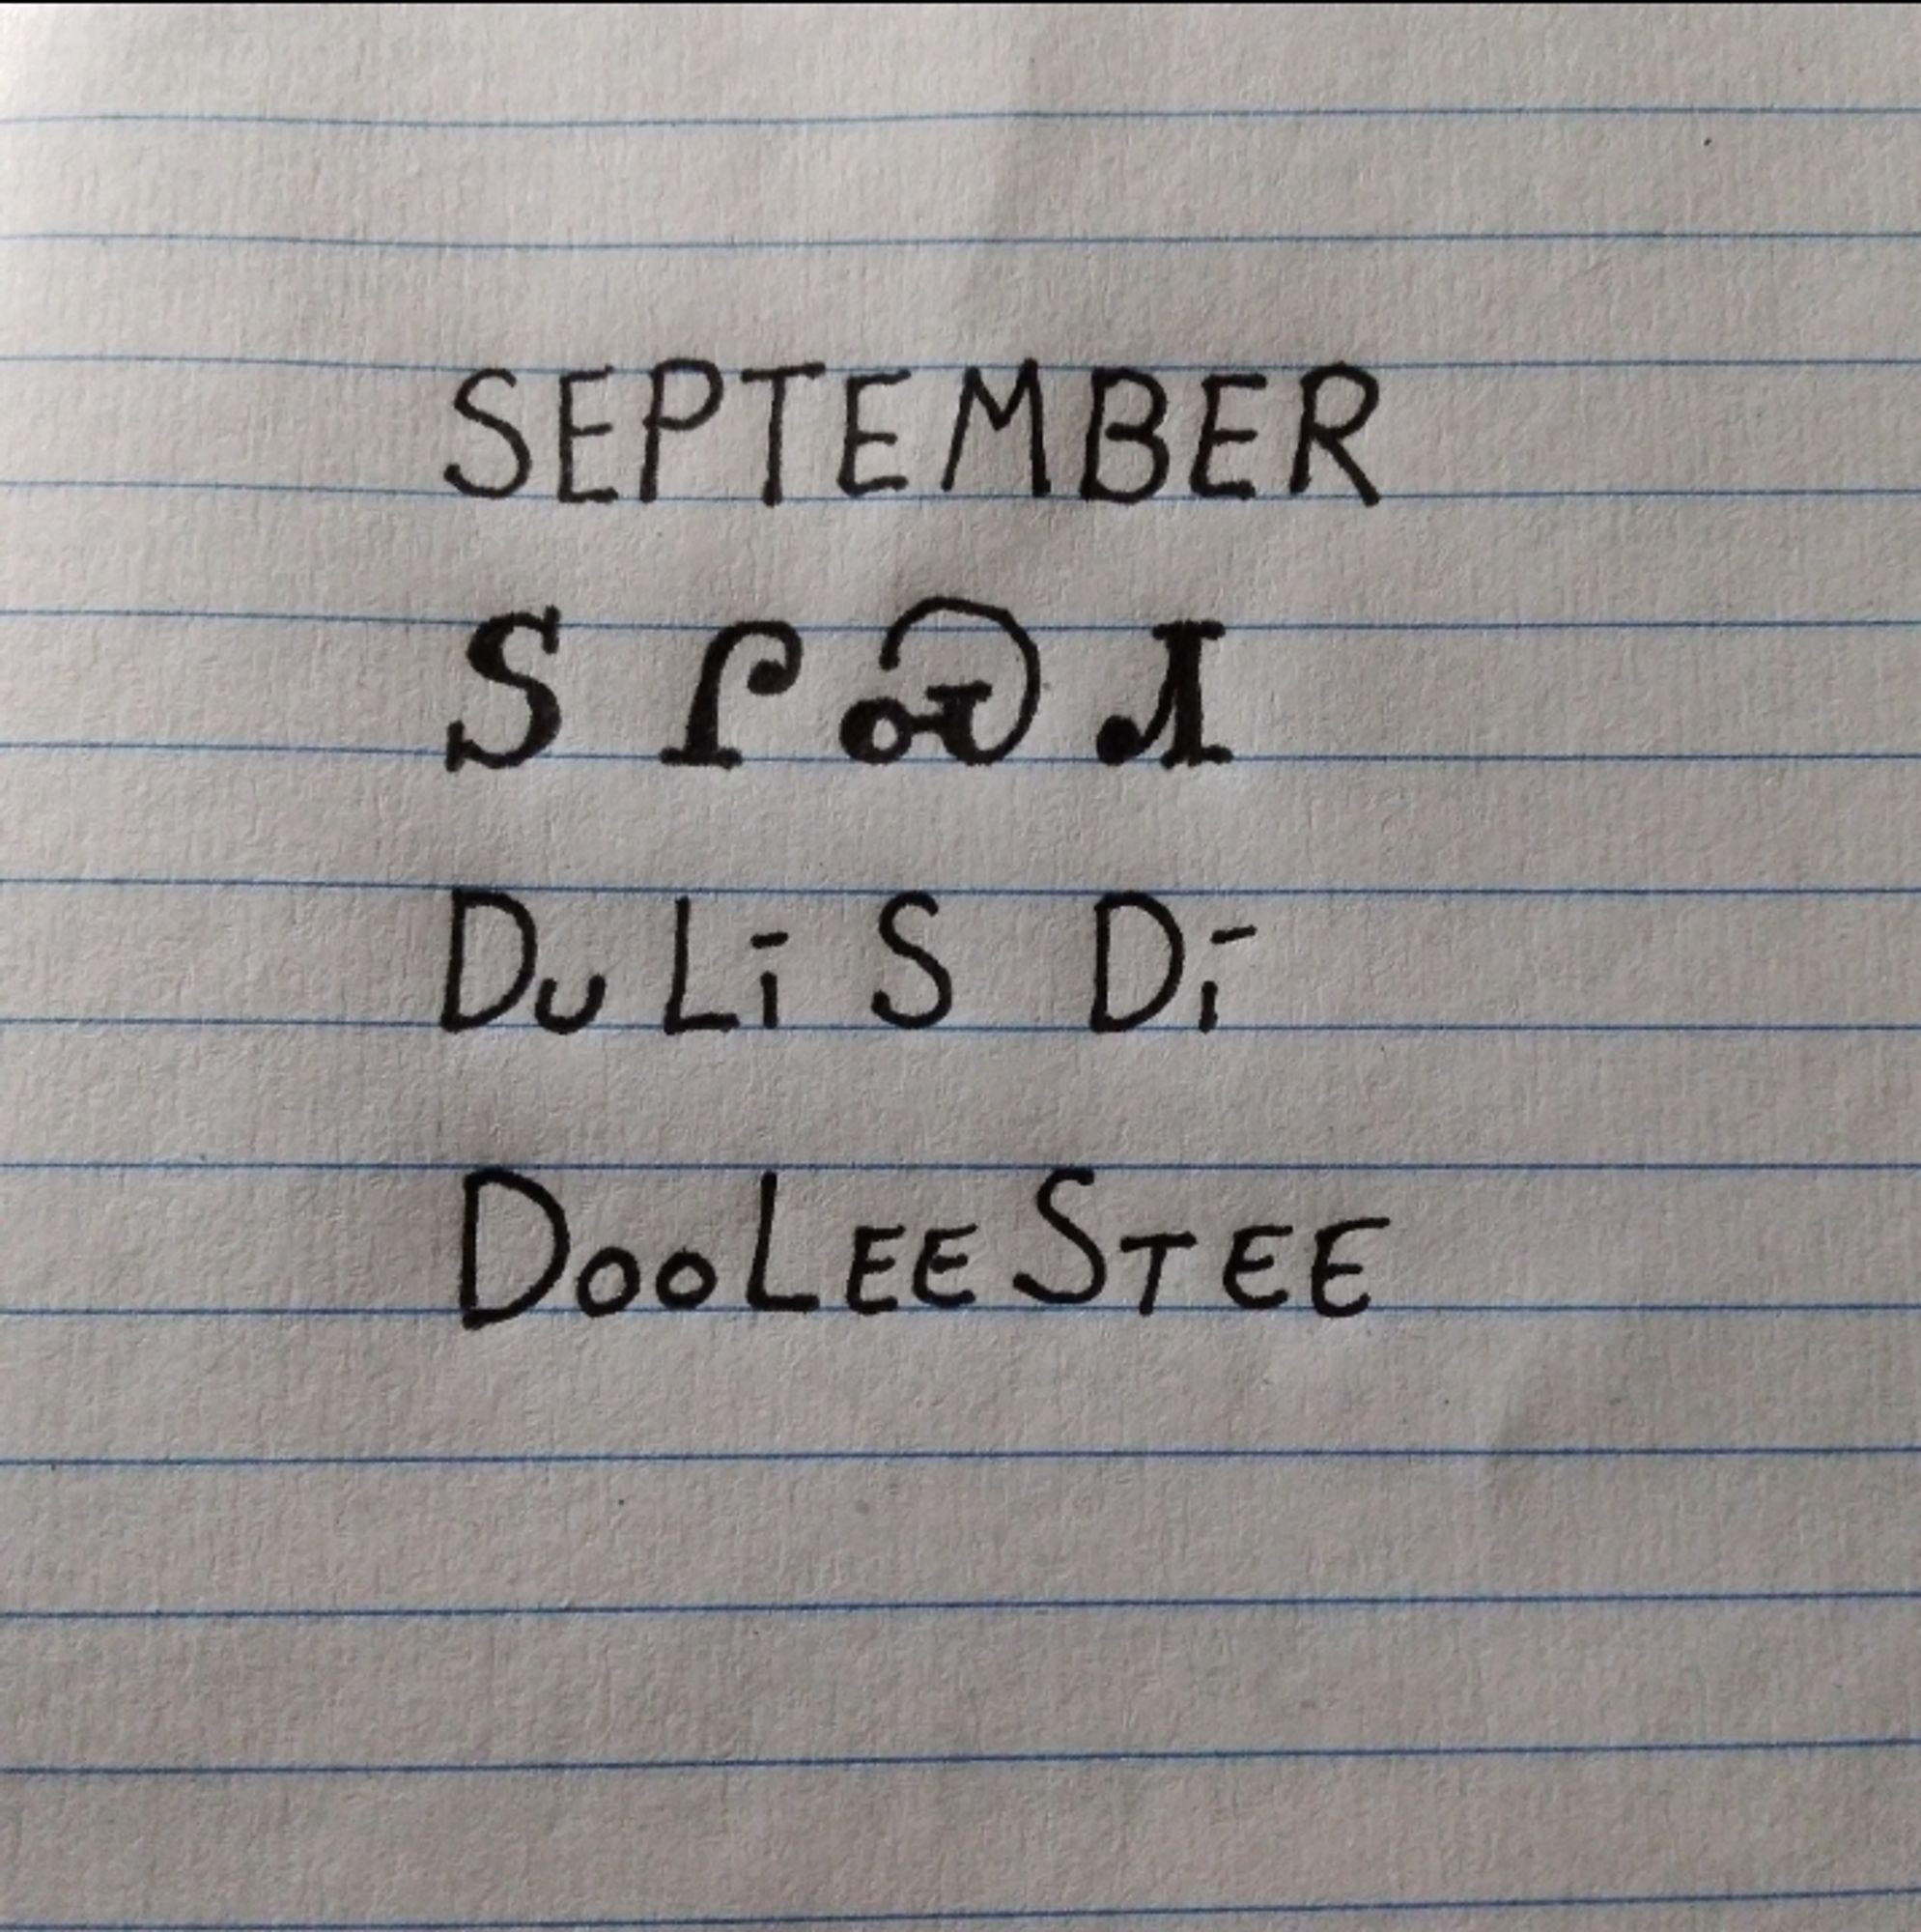 SEPTEMBER
Ꮪ Ꮅ Ꮝ Ꮧ
Du Lī S Dī
DooLEESTEE